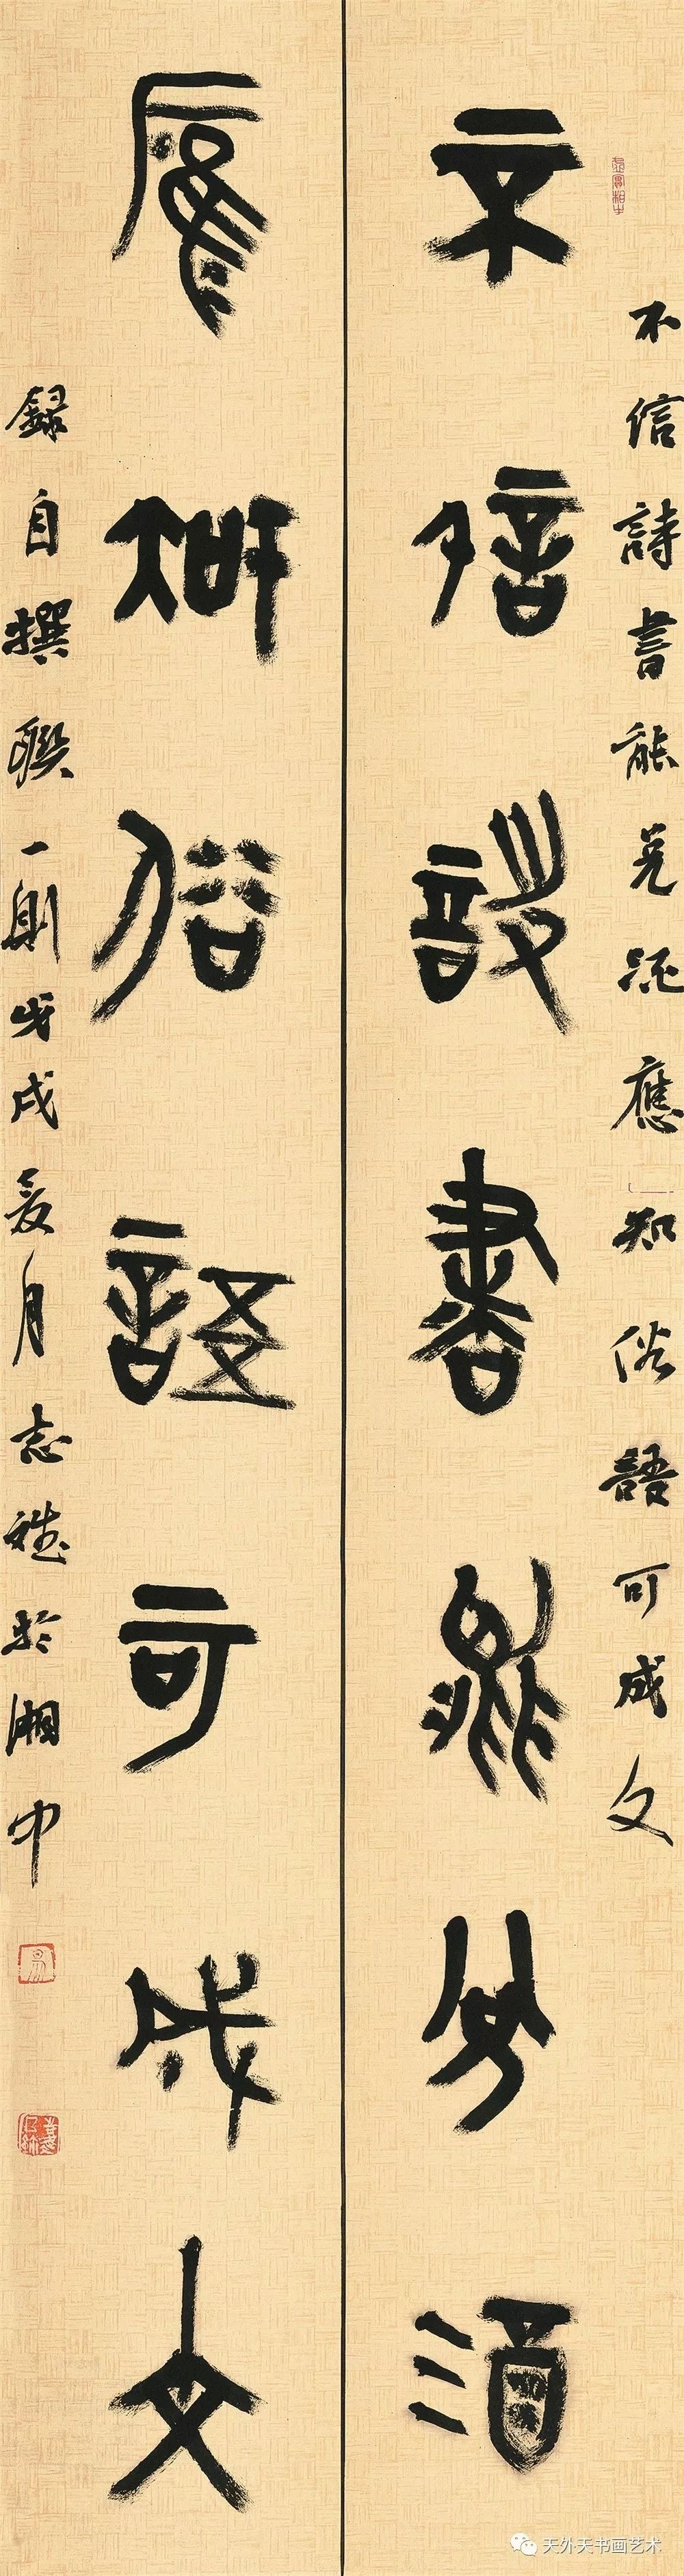 不信詩書能免應知俗語可成文
不信詩書能免
應知俗語可成文
錄自撰聯一則戊戌夏月志於湘中
天外天书画艺术